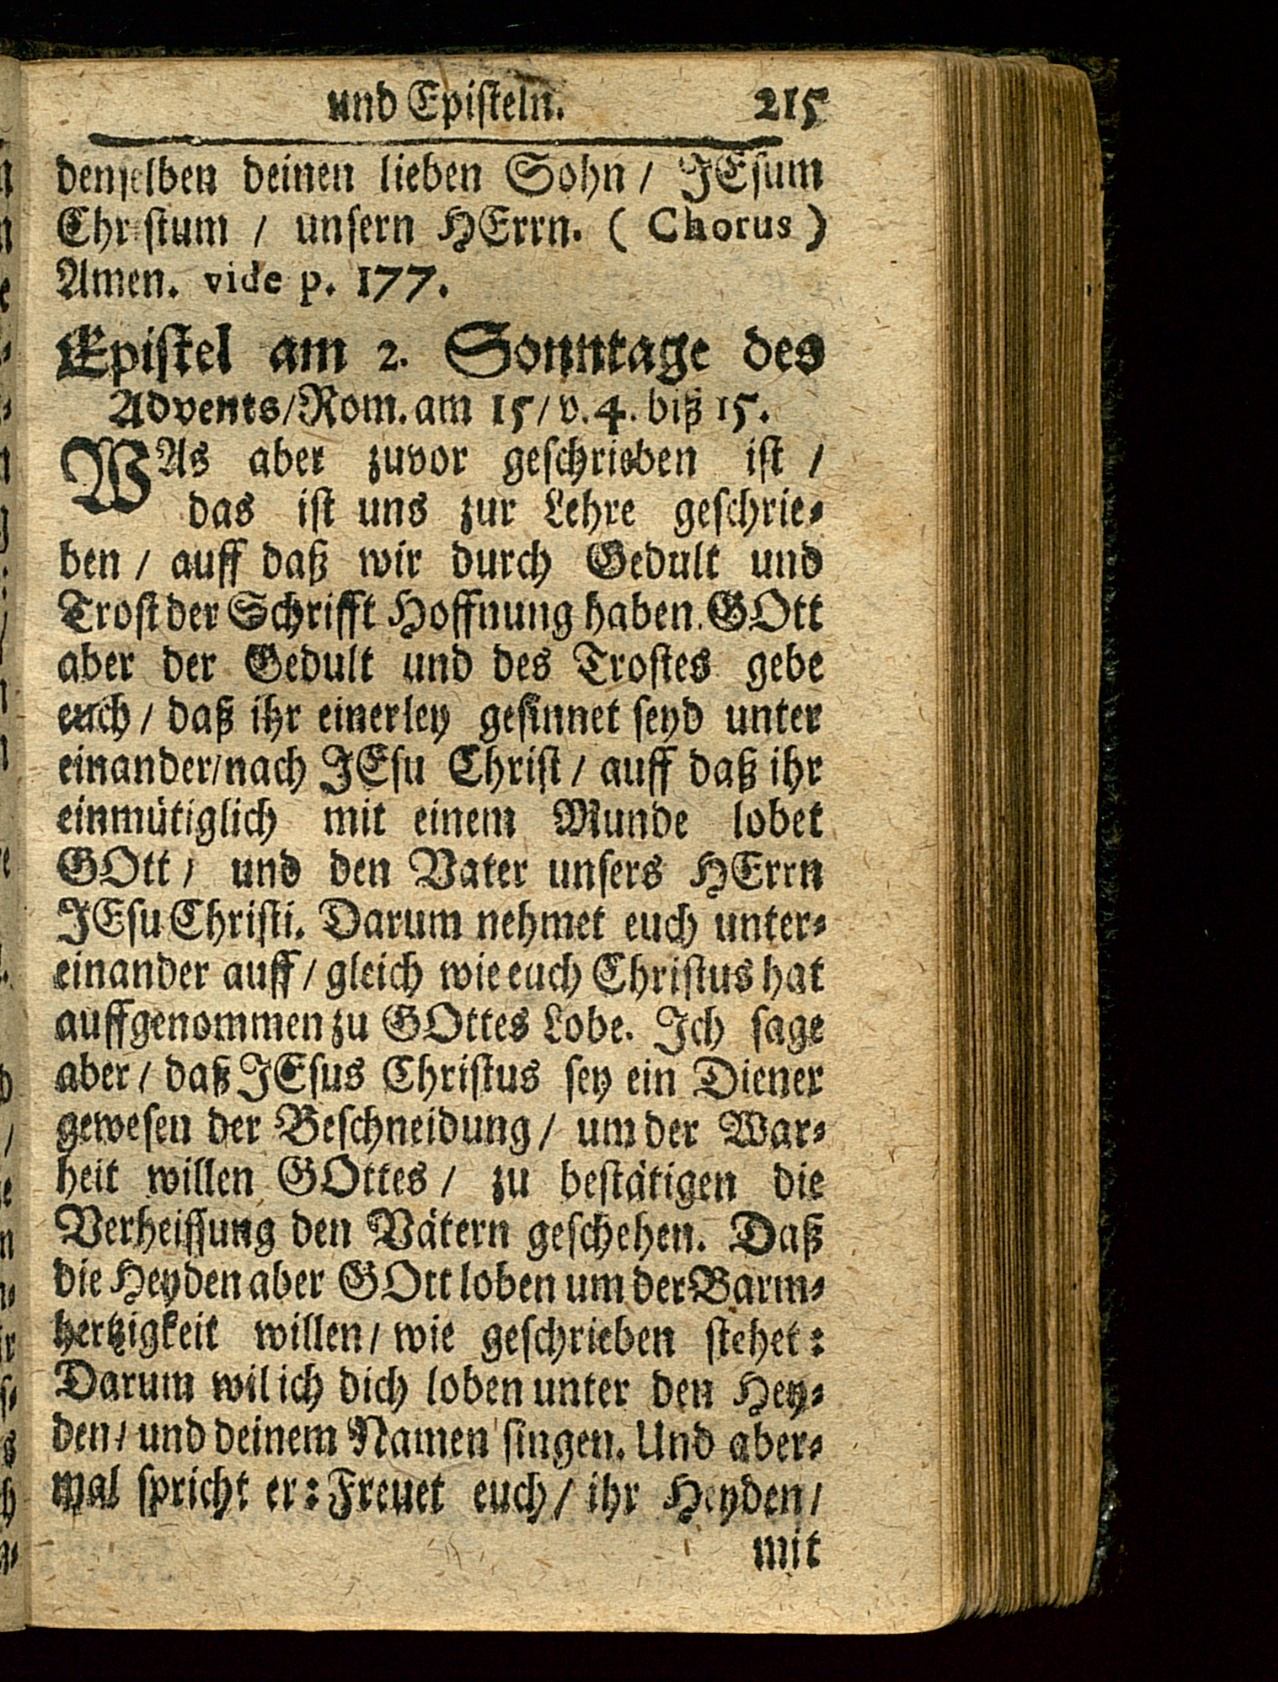 und Episteln. 215
denselben deinen lieben Sohn / JEsum
Christum / unsern HErrn. ( Chorus )
Amen. vide p. 177.
Epistel am 2. Sonntage des
Advents/Rom. am 15/v. 4. biß 15.
WAs aber zuvor geschrieben ist /
das ist uns zur Lehre geschrie-
ben / auff daß wir durch Gedult und
Trost der Schrifft Hoffnung haben. GOtt
aber der Gedult und des Trostes gebe
euch / daß ihr einerley gesinnet seyd unter
einander/nach JEsu Christ / auff daß ihr
einmütiglich mit einem Munde lobet
GOtt / und den Vater unsers HErrn
JEsu Christi. Darum nehmet euch unter-
einander auff / gleich wie euch Christus hat
auffgenommen zu GOttes Lobe. Ich sage
aber / daß JEsus Christus sey ein Diener
gewesen der Beschneidung / um der War-
heit willen GOttes / zu bestätigen die
Verheissung den Vätern geschehen. Daß
die Heyden aber GOtt loben um der Barm-
hertzigkeit willen / wie geschrieben stehet:
Darum wil ich dich loben unter den Hey-
den / und deinem Namen singen. Und aber-
mal spricht er: Freuet euch / ihr Heyden /
mit